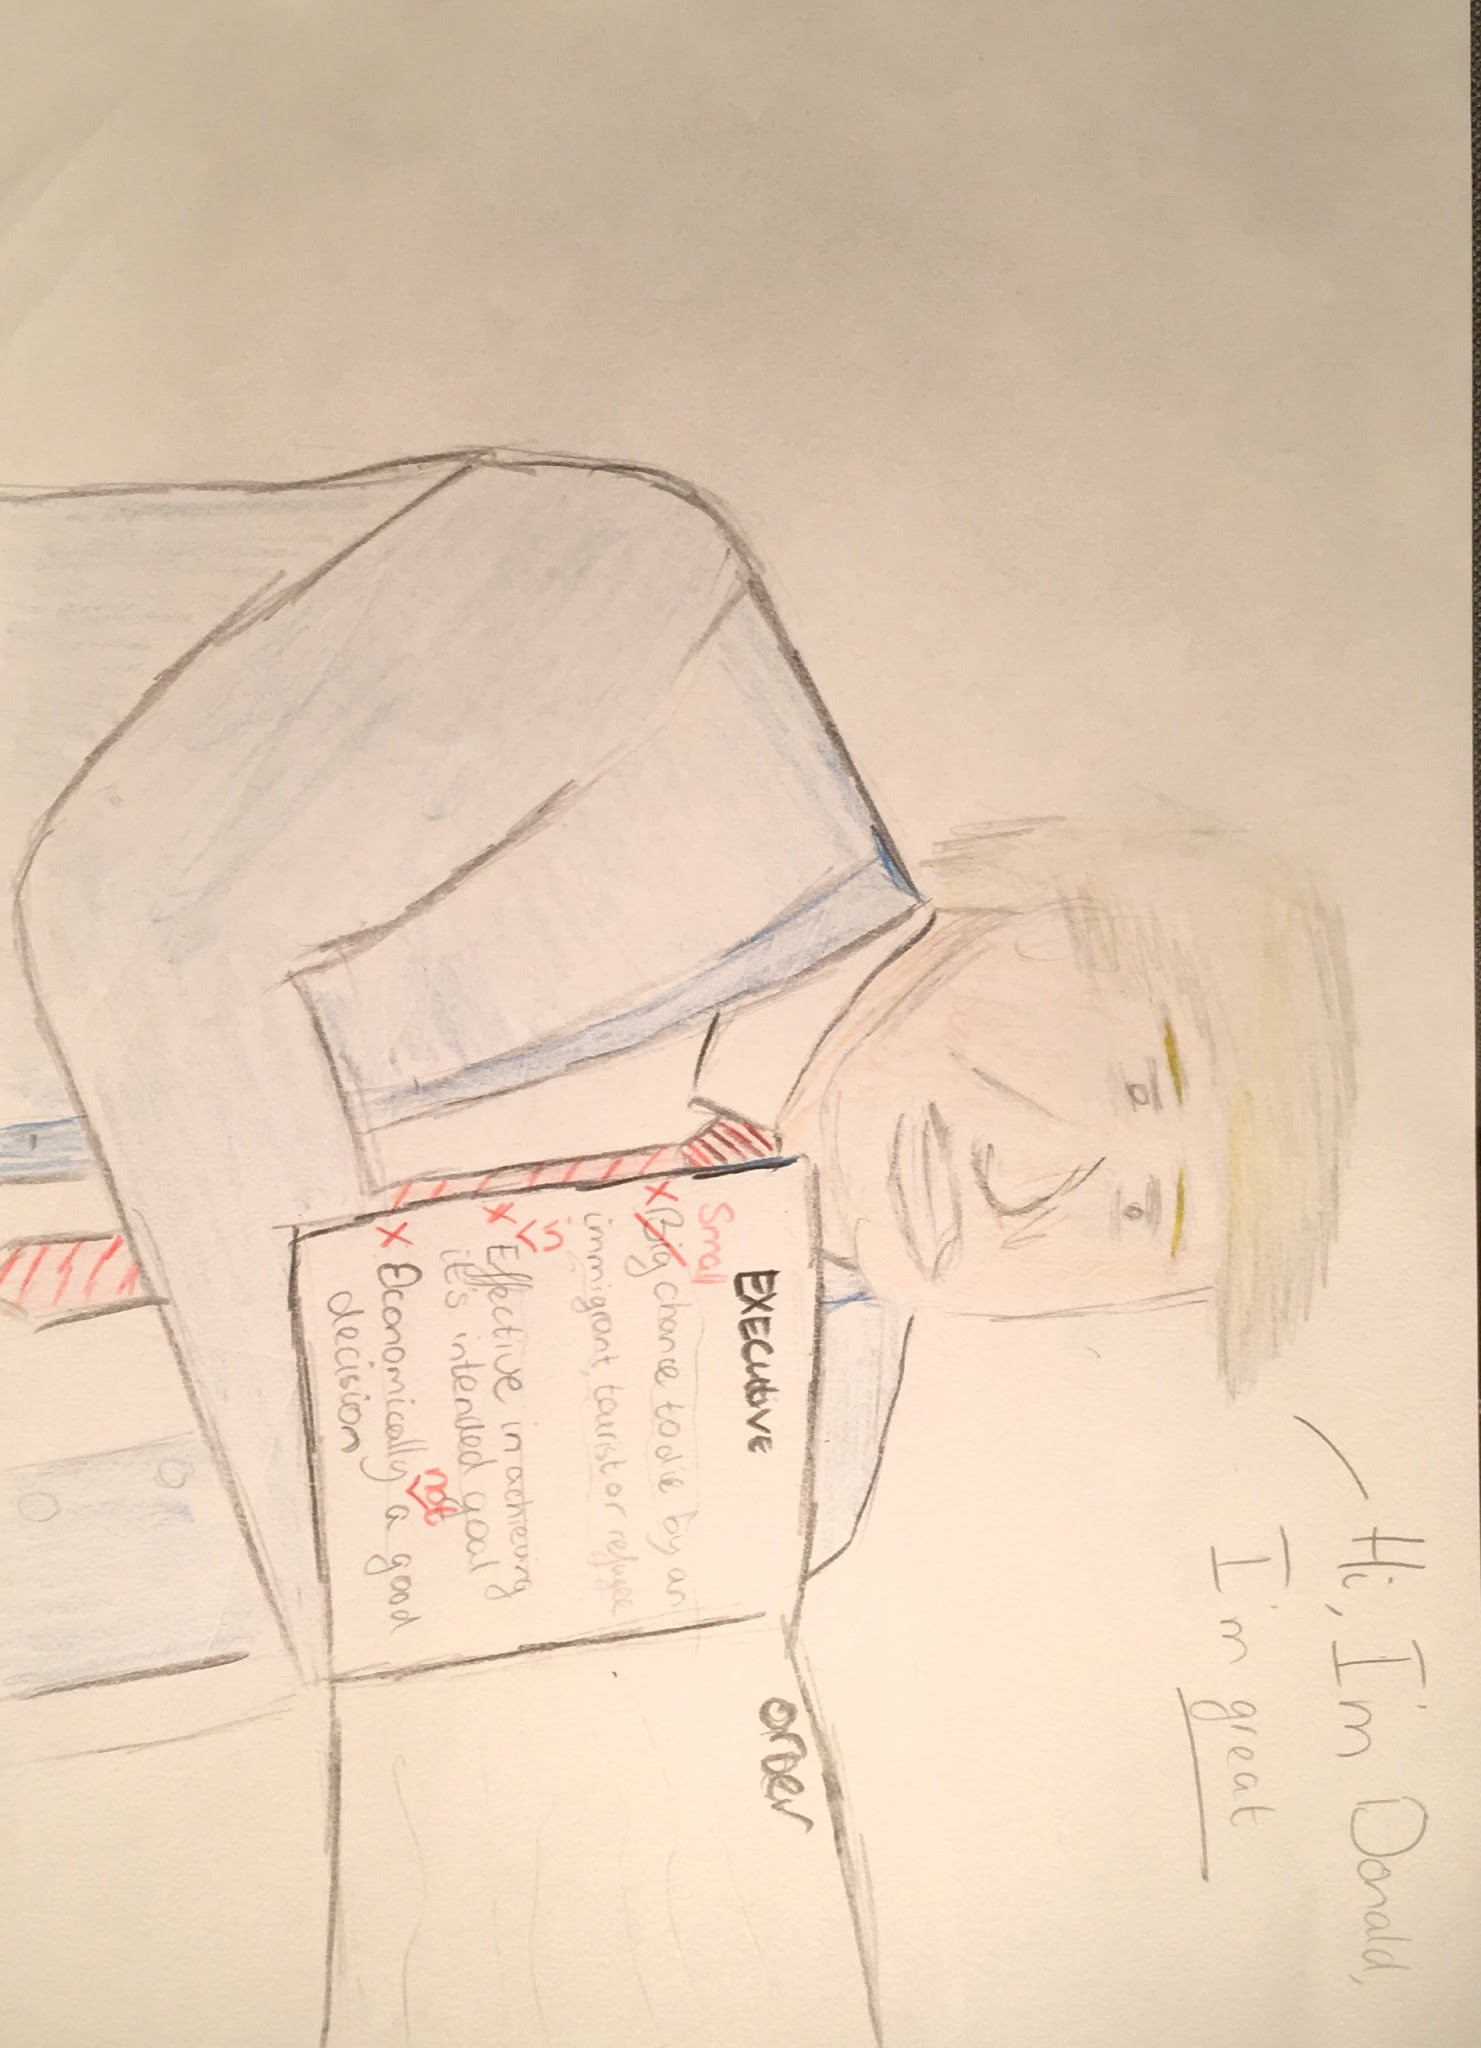 Hi, I'm Donald,
I'm great
EXECutiVE
orDer
Small
x Big chance to die by an
immigrant, tourist or refugee
in
x Effective in achieving
it's intended goal
not
x Economically a good
decision